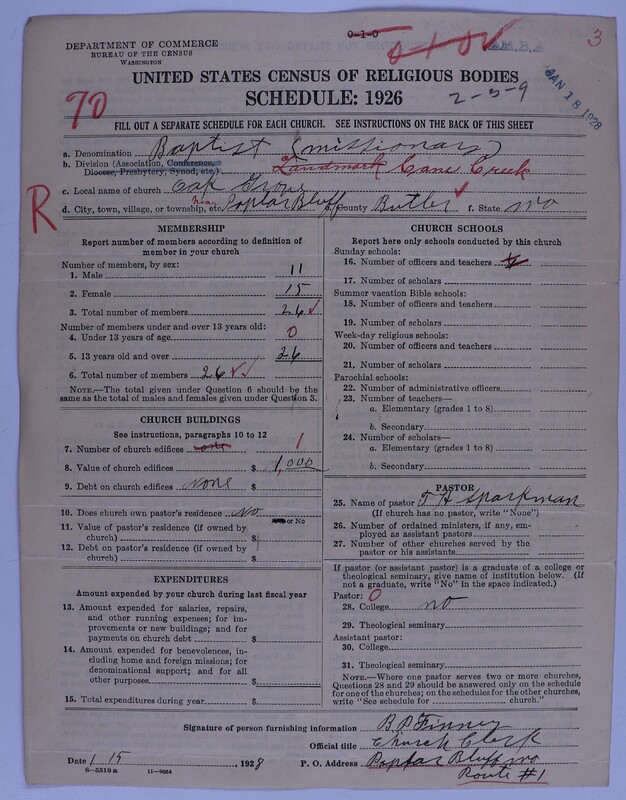 0-1-0
3
DEPARTMENT OF COMMERCE
BUREAU OF THE CENSUS
WASHINGTON
UNITED STATES CENSUS OF RELIGIOUS BODIES
SCHEDULE: 1926
2-5-9
JAN 18 1928
70
FILL OUT A SEPARATE SCHEDULE FOR EACH CHURCH. SEE INSTRUCTIONS ON THE BACK OF THIS SHEET
a. Denomination Baptist (missionary)
b. Division (Association, Conference, Diocese, Presbytery, Synod, etc.) Landmark Cane Creek
c. Local name of church Oak Grove
R
d. City, town, village, or township, etc. near Poplar Bluff e. County Butler f. State Mo
MEMBERSHIP
Report number of members according to definition of
member in your church
Number of members, by sex:
1. Male 11
2. Female 15
3. Total number of members 26 ✓
Number of members under and over 13 years old:
4. Under 13 years of age 0
5. 13 years old and over 26
6. Total number of members 26 ✓✓
NOTE.—The total given under Question 6 should be the
same as the total of males and females given under Question 3.
CHURCH BUILDINGS
See instructions, paragraphs 10 to 12
7. Number of church edifices one 1
8. Value of church edifices $ 1,000
9. Debt on church edifices None $
10. Does church own pastor's residence No
Yes or No
11. Value of pastor's residence (if owned by
church) $
12. Debt on pastor's residence (if owned by
church) $
EXPENDITURES
Amount expended by your church during last fiscal year
13. Amount expended for salaries, repairs,
and other running expenses; for im-
provements or new buildings; and for
payments on church debt $
14. Amount expended for benevolences, in-
cluding home and foreign missions; for
denominational support; and for all
other purposes $
15. Total expenditures during year $
CHURCH SCHOOLS
Report here only schools conducted by this church
Sunday schools:
16. Number of officers and teachers
17. Number of scholars
Summer vacation Bible schools:
18. Number of officers and teachers
19. Number of scholars
Week-day religious schools:
20. Number of officers and teachers
21. Number of scholars
Parochial schools:
22. Number of administrative officers
23. Number of teachers—
a. Elementary (grades 1 to 8)
b. Secondary
24. Number of scholars—
a. Elementary (grades 1 to 8)
b. Secondary
PASTOR
25. Name of pastor T H Sparkman
(If church has no pastor, write "None")
26. Number of ordained ministers, if any, em-
ployed as assistant pastors
27. Number of other churches served by the
pastor or his assistants
If pastor (or assistant pastor) is a graduate of a college or
theological seminary, give name of institution below. (If
not a graduate, write "No" in the space indicated.)
Pastor: 0
28. College no
29. Theological seminary
Assistant pastor:
30. College
31. Theological seminary
NOTE.—Where one pastor serves two or more churches,
Questions 28 and 29 should be answered only on the schedule
for one of the churches; on the schedules for the other churches,
write "See schedule for church."
Signature of person furnishing information B P Finney
Official title Church Clerk
Date 1 15, 1928 P. O. Address Poplar Bluff Mo
8—5518a 11—9034 Route #1